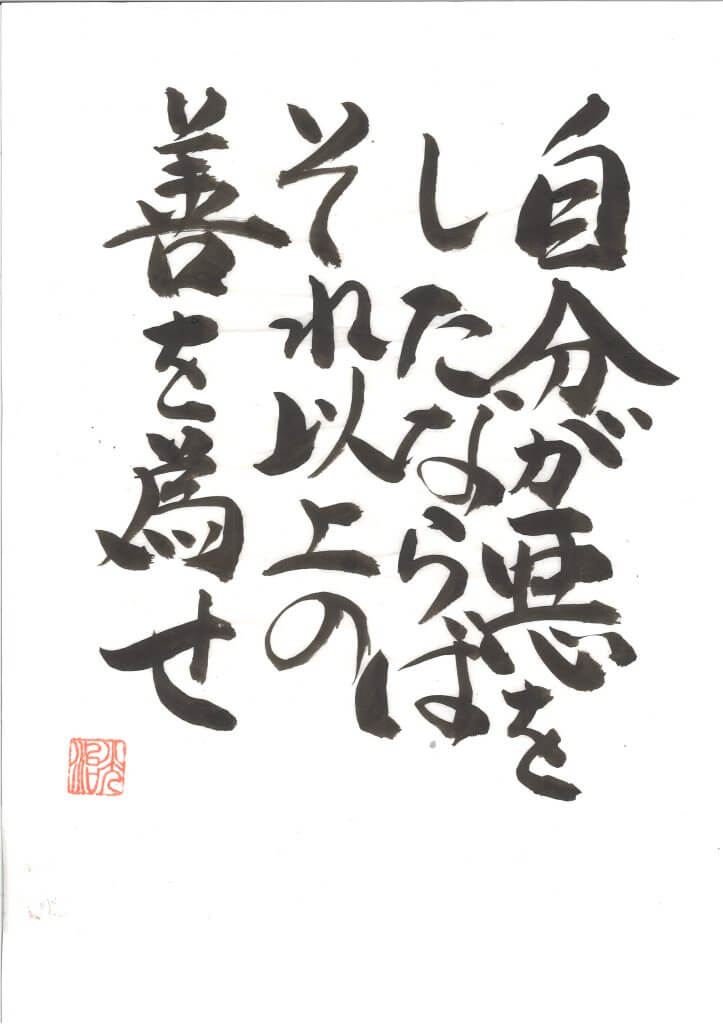 自分が悪を
したならば
それ以上の
善を為せ